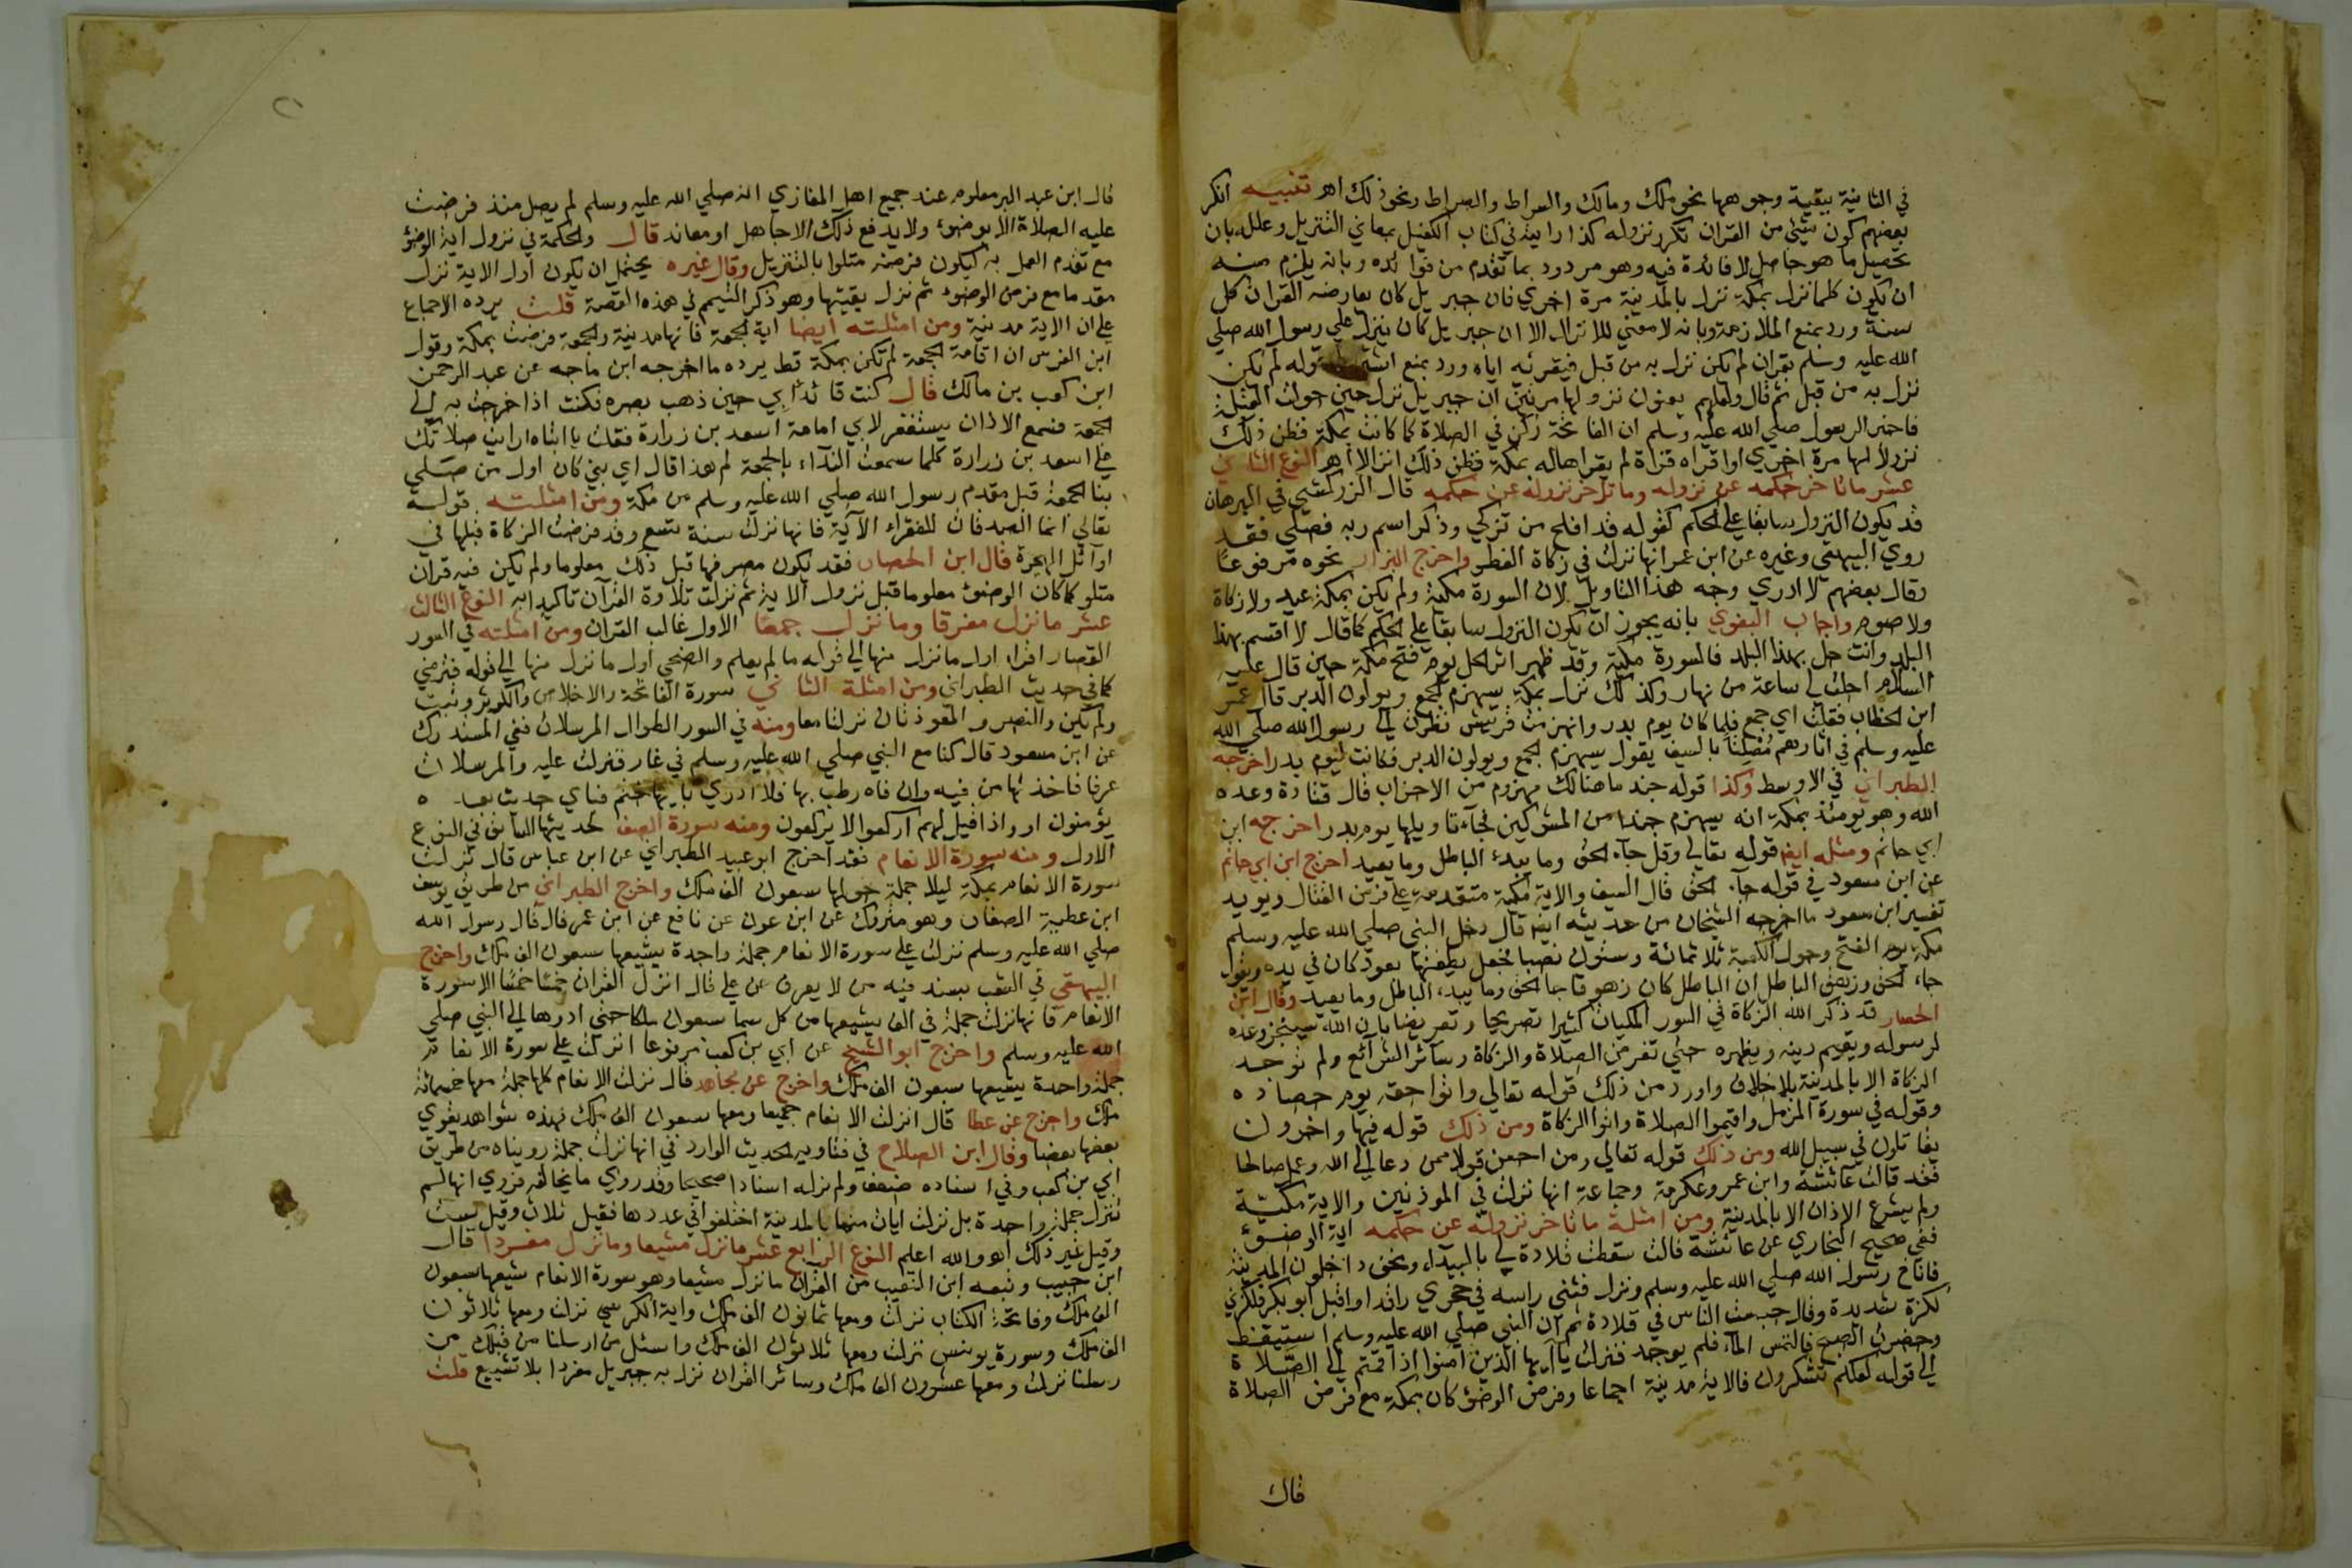 في الثانية ببقية وجوهها نحو ملك ومالك والسراط والصراط ونحو ذلك اهـ تنبيه انكر
بعضهم كون شيئ من القران تكرر نزوله كذا رايته في كتاب الكفيل بمعاني التنزيل وعلله بان
تحصيل ما هو حاصل لا فائدة فيه وهو مردود بما تقدم من فوائده وبانه يلزم منه
ان يكون كلما نزل بمكة نزل بالمدينة مرة اخري فان جبريل كان يعارضه القران كل
سنة ورد بمنع الملازمة وبانه لا معني للانزال الا ان جبريل كان ينزل علي رسول الله صلي
الله عليه وسلم بقران لم يكن نزل به من قبل فيقرئه اياه ورد بمنع قوله لم يكن
نزل به من قبل ثم قال ولعلهم يعنون نزولها مرتين ان جبريل نزل حين حولت القبلة
فاخبر الرسول صلي الله عليه وسلم ان الفاتحة ركن في الصلاة كما كانت بمكة فظن ذلك
نزولا لها مرة اخري او اقراه قراة لم يقراها له بمكة فظن ذلك انزالا اهـ النوع الثاني
عشر ما تاخر حكمه عن نزوله وما تاخر نزوله عن حكمه قال الزركشي في البرهان
قد يكون النزول سابقا علي الحكم كقوله قد افلح من تزكي وذكر اسم ربه فصلي فقد
روي البيهقي وغيره عن ابن عمر انها نزلت في زكاة الفطر واخرج البزار نحوه مرفوعا
وقال بعضهم لا ادري وجه هذا التاويل لان السورة مكية ولم يكن بمكة عيد ولا زكاة
ولا صوم واجاب البغوي بانه يجوز ان يكون النزول سابقا علي الحكم كما قال لا اقسم بهذا
البلد وانت حل بهذا البلد فالسورة مكية وقد ظهر اثر الحل يوم فتح مكة حين قال عليه
السلام احلت لي ساعة من نهار وكذلك نزل بمكة سيهزم الجمع ويولون الدبر قال عمر
ابن الخطاب فقلت اي جمع فلما كان يوم بدر وانهزمت قريش نظرت الي رسول الله صلي الله
عليه وسلم في اثارهم مصلتا بالسيف يقول سيهزم الجمع ويولون الدبر فكانت ليوم بدر اخرجه
الطبراني في الاوسط وكذا قوله جند ما هنالك مهزوم من الاحزاب قال قتادة وعده
الله وهو يومئذ بمكة انه سيهزم جندا من المشركين فجآء تاويلها يوم بدر اخرجه ابن
ابي حاتم ومثله ايضا قوله تعالي وقل جآء الحق وما يبدئ الباطل وما يعيد اخرج ابن ابي حاتم
عن ابن مسعود في قوله جآء الحق قال السيف والاية مكية متقدمة علي فرض القتال ويويد
تفسير ابن مسعود ما اخرجه الشيخان من حديثه ايضا قال دخل النبي صلي الله عليه وسلم
مكة يوم الفتح وحول الكعبة ثلاثمائة وستون نصبا فجعل يطعنها بعود كان في يده ويقول
جاء الحق وزهق الباطل ان الباطل كان زهوقا جا الحق وما يبدء الباطل وما يعيد وقال ابن
الحصار قد ذكر الله الزكاة في السور المكيات كثيرا تصريحا وتعريضا بان الله سينجز وعده
لرسوله ويقيم دينه ويظهره حتي تفرض الصلاة والزكاة وسائر الشرائع ولم توخذ
الزكاة الا بالمدينة بلا خلاف واورد من ذلك قوله تعالي واتوا حقه يوم حصاده
وقوله في سورة المزمل واقيموا الصلاة واتوا الزكاة ومن ذلك قوله فيها واخرون
يقاتلون في سبيل الله ومن ذلك قوله تعالي ومن احسن قولا ممن دعا الي الله وعمل صالحا
فقد قالت عائشة وابن عمر وعكرمة وجماعة انها نزلت في الموذنين والاية مكية
ولم يشرع الاذان الا بالمدينة ومن امثلة ما تاخر نزوله عن حكمه اية الوضوئ
ففي صحيح البخاري عن عائشة قالت سقطت قلادة لي بالبيدآء ونحن داخلون المدينة
فاناخ رسول الله صلي الله عليه وسلم ونزل فثني راسه في حجري راقدا واقبل ابو بكر فلكزني
لكزة شديدة وقال حبست الناس في قلادة ثم ان النبي صلي الله عليه وسلم استيقظ
وحضرت الصبح فالتمس المآء فلم يوجد فنزلت يا ايها الذين امنوا اذا قمتم الي الصلاة
الي قوله لعلكم تشكرون فالاية مدنية اجماعا وفرض الوضوء كان بمكة مع فرض الصلاة
قال
قال ابن عبد البر معلوم عند جميع اهل المغازي انه صلي الله عليه وسلم لم يصل منذ فرضت
عليه الصلاة الا بوضوء ولا يدفع ذلك الا جاهل او معاند قال والحكمة في نزول اية الوضؤ
مع تقدم العمل به ليكون فرضه متلوا بالتنزيل وقال غيره يحتمل ان يكون اول الاية نزل
مقدما مع فرض الوضوء ثم نزل بقيتها وهو ذكر التيمم في هذه القصة قلت يرده الاجماع
علي ان الاية مدنية ومن امثلته ايضا اية الجمعة فانها مدنية والجمعة فرضت بمكة وقول
ابن الغرس ان اقامة الجمعة لم تكن بمكة قط يرده ما اخرجه ابن ماجه عن عبد الرحمن
ابن كعب بن مالك قال كنت قائد ابي حين ذهب بصره فكنت اذا خرجت به الي
الجمعة فسمع الاذان يستغفر لابي امامة اسعد بن زرارة فقلت يا ابتاه ارايت صلاتك
علي اسعد بن زرارة كلما سمعت الندآء بالجمعة لم هذا قال اي بني كان اول من صلي
بنا الجمعة قبل مقدم رسول الله صلي الله عليه وسلم من مكة ومن امثلته قوله
تعالي انما الصدقات للفقراء الآية فانها نزلت سنة تسع وقد فرضت الزكاة قبلها في
اوائل الهجرة قال ابن الحصار فقد يكون مصرفها قبل ذلك معلوما ولم يكن فيه قران
متلو كما كان الوضوء معلوما قبل نزول الاية ثم نزلت تلاوة القرآن تاكيدا به النوع الثالث
عشر ما نزل مفرقا وما نزل جمعا الاول غالب القران ومن امثلته في السور
القصار اقرا اول ما نزل منها الي قوله ما لم يعلم والضحي اول ما نزل منها الي قوله فترضي
كما في حديث الطبراني ومن امثلة الثاني سورة الفاتحة والاخلاص والكوثر وتبت
ولم يكن والنصر والمعوذتان نزلتا معا ومنه في السور الطوال المرسلات ففي المستدرك
عن ابن مسعود قال كنا مع النبي صلي الله عليه وسلم في غار فنزلت عليه والمرسلات
عرفا فاخذتها من فيه وان فاه رطب بها فلا ادري بايها ختم فباي حديث بعده
يؤمنون او واذا قيل لهم اركعوا لا يركعون ومنه سورة الصف لحديثها السابق في النوع
الاول ومنه سورة الانعام فقد اخرج ابو عبيد الطبراني عن ابن عباس قال نزلت
سورة الانعام بمكة ليلا جملة حولها سبعون الف ملك واخرج الطبراني من طريق يوسف
ابن عطية الصفار وهو متروك عن ابن عون عن نافع عن ابن عمر قال قال رسول الله
صلي الله عليه وسلم نزلت علي سورة الانعام جملة واحدة يشيعها سبعون الف ملك واخرج
البيهقي في الشعب بسند فيه من لا يعرف عن علي قال انزل القران خمسا خمسا الا سورة
الانعام فانها نزلت جملة في الف يشيعها من كل سما سبعون ملكا حتي ادوها الي النبي صلي
الله عليه وسلم واخرج ابو الشيخ عن ابي بن كعب مرفوعا انزلت علي سورة الانعام
جملة واحدة يشيعها سبعون الف ملك واخرج عن مجاهد قال نزلت الانعام كلها جملة معها خمسمائة
ملك واخرج عن عطا قال انزلت الانعام جميعا ومعها سبعون الف ملك فهذه شواهد يقوي
بعضها بعضا وقال ابن الصلاح في فتاويه الحديث الوارد في انها نزلت جملة رويناه من طريق
ابي بن كعب وفي اسناده ضعف ولم نر له اسنادا صحيحا وقد روي ما يخالفه فروي انها لم
تنزل جملة واحدة بل نزلت ايات منها بالمدينة اختلفوا في عددها فقيل ثلاث وقيل ست
وقيل غير ذلك اهـ والله اعلم النوع الرابع عشر ما نزل مشيعا وما نزل مفردا قال
ابن حبيب وتبعه ابن النقيب من القران ما نزل مشيعا وهو سورة الانعام شيعها سبعون
الف ملك وفاتحة الكتاب نزلت ومعها ثمانون الف ملك واية الكرسي نزلت ومعها ثلاثون
الف ملك وسورة يونس نزلت ومعها ثلاثون الف ملك واسئل من ارسلنا من قبلك من
رسلنا نزلت ومعها عشرون الف ملك وسائر القران نزل به جبريل مفردا بلا تشييع قلت